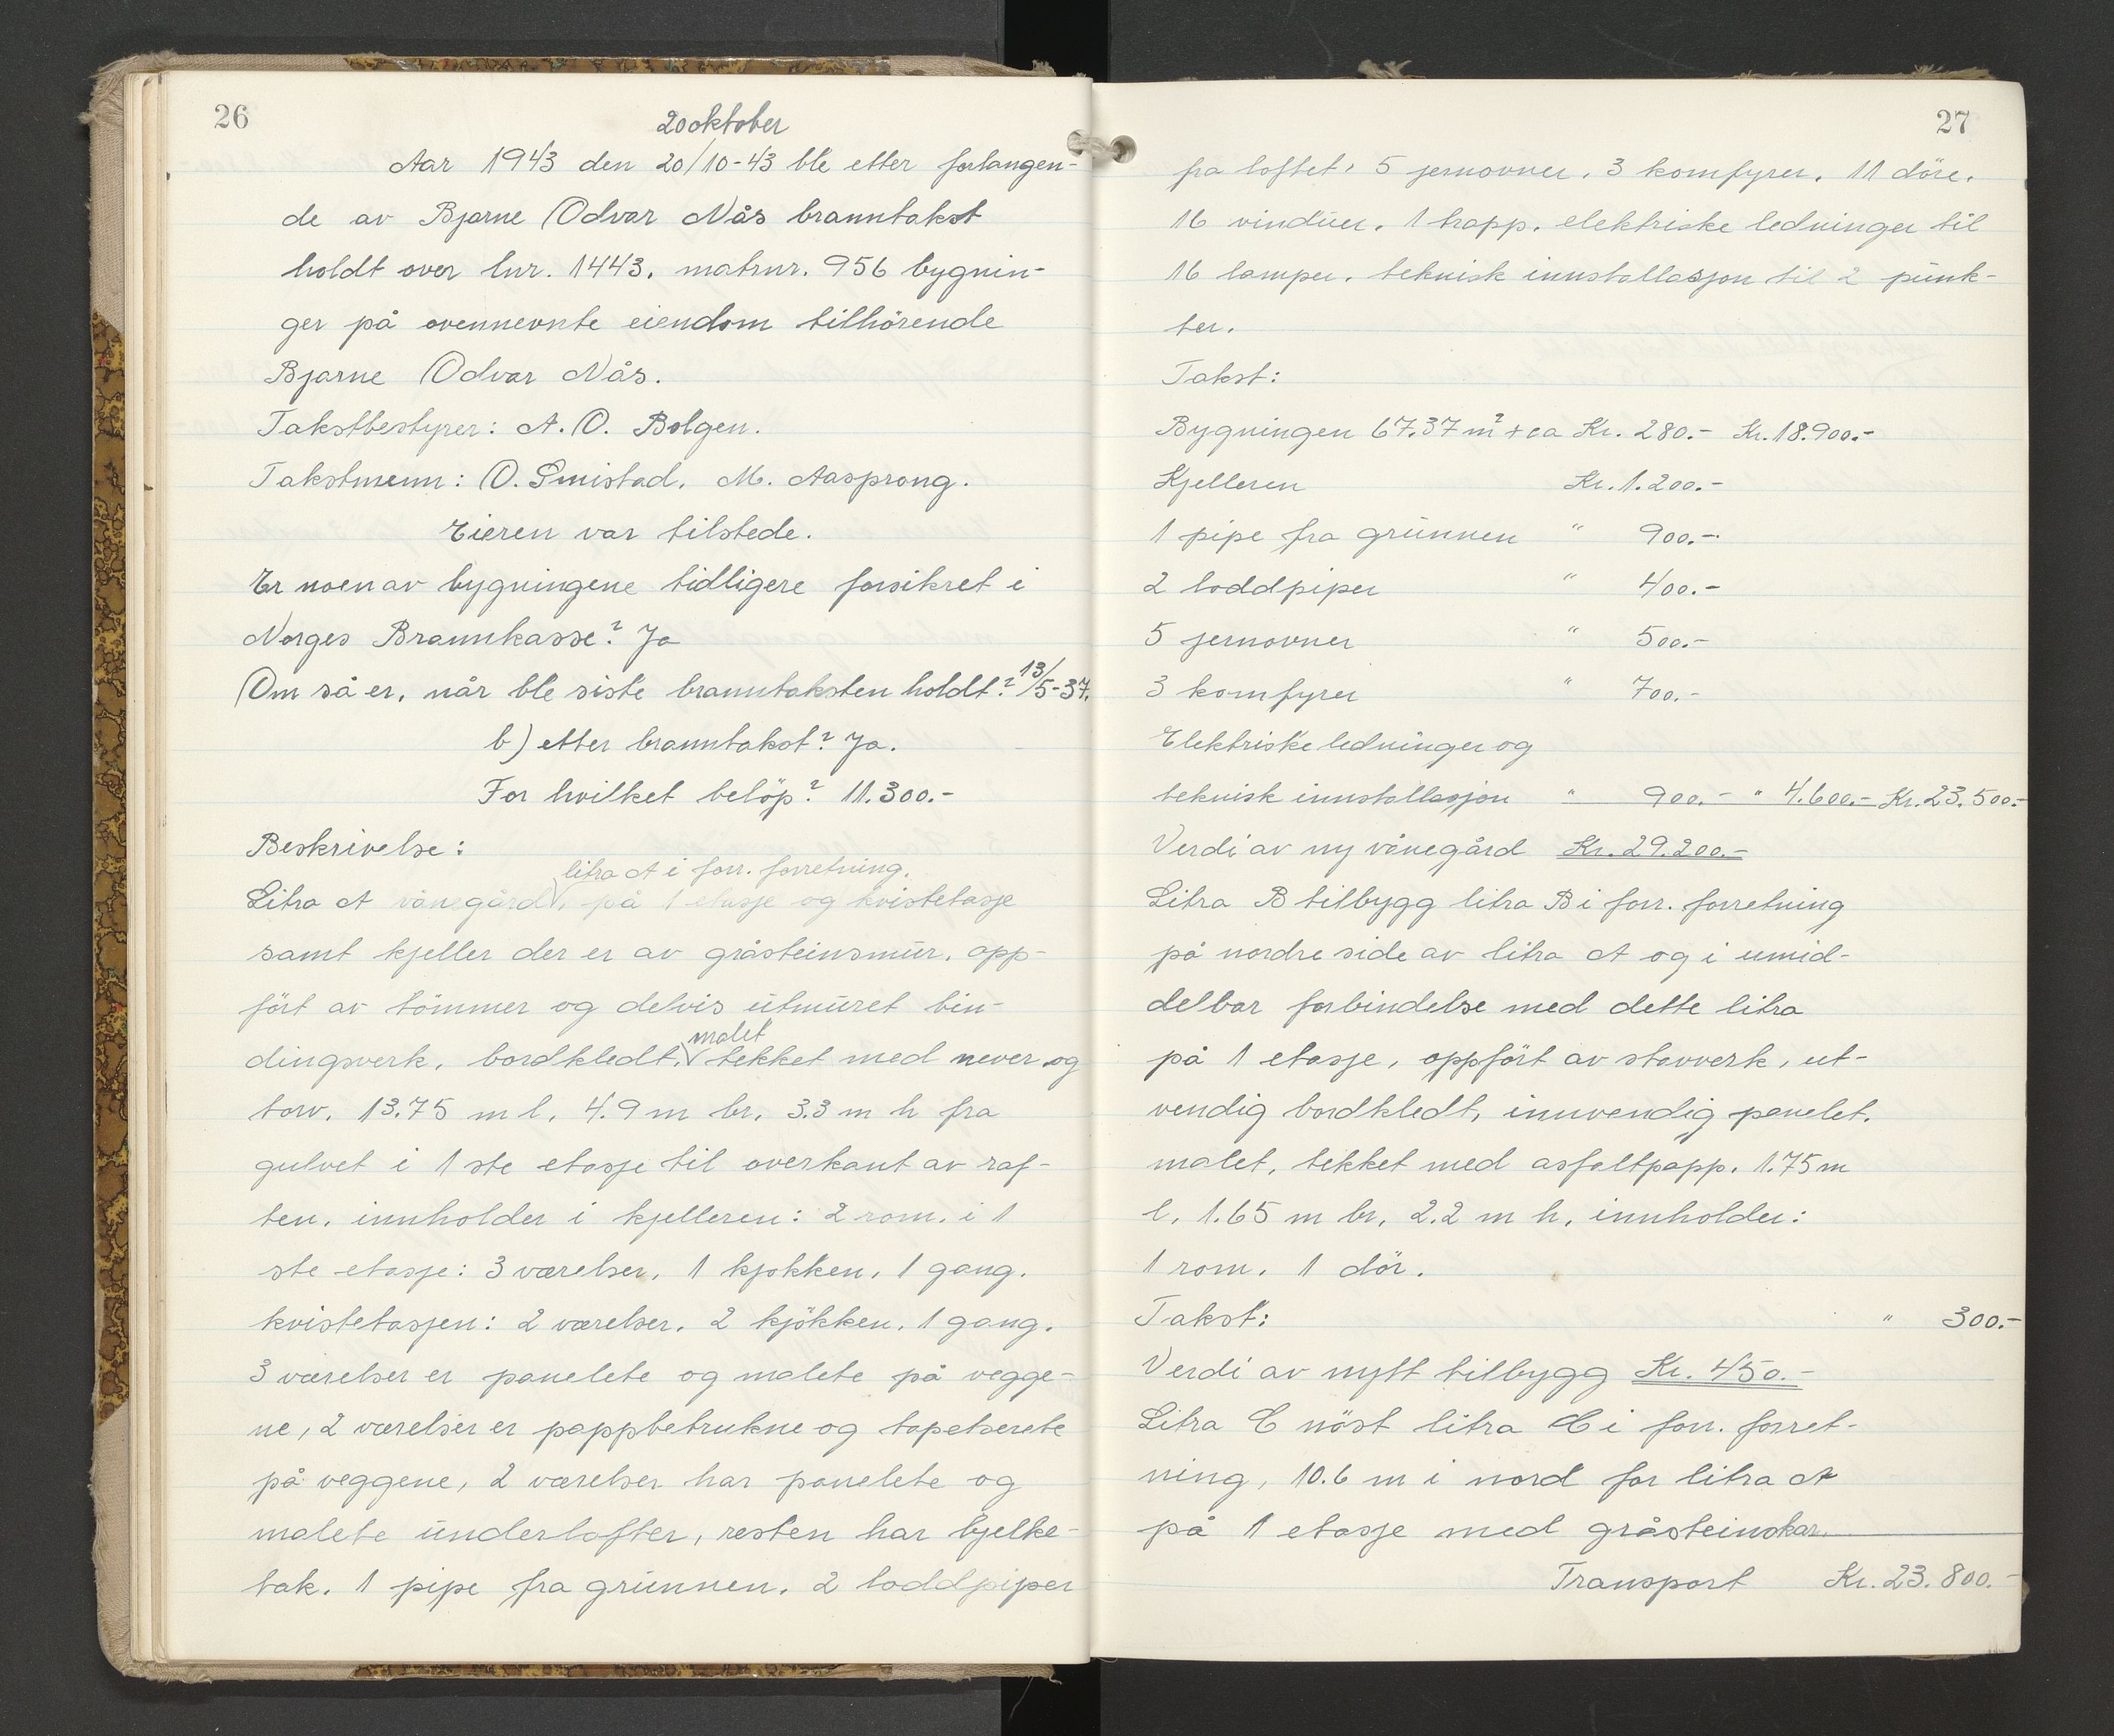 26
20 oktober
Aar 1943 den 20/10-43 ble etter forlangen-
de av Bjarne Odvar Nås branntakst
holdt over lnr. 1443, matrnr. 956 bygnin-
ger på ovennevnte eiendom tilhörende
Bjarne Odvar Nås.
Takstbestyrer: A. O. Bolgen.
Takstmenn: O. Smistad, M. Aasprong.
Eieren var tilstede.
Er noen av bygningene tidligere forsikret i
Norges Brannkasse? Ja
Om så er, når ble siste branntaksten holdt? 13/5-37.
b) etter branntakst? Ja.
For hvilket belöp? 11.300.-
Beskrivelse:
litra A i forr. forretning.
Litra A vånegård, på 1 etasje og kvistetasje
samt kjeller der er av gråsteinsmur, opp-
fört av tömmer og delvis utmuret bin-
malet
dingsverk, bordkledt, tekket med never og
torv. 13.75 m l, 4.9 m br, 3.3 m h fra
gulvet i 1 ste etasje til overkant av raf-
ten, innholder i kjelleren: 2 rom. i 1
ste etasje: 3 værelser, 1 kjøkken, 1 gang.
kvistetasjen: 2 værelser, 2 kjökken, 1 gang.
3 værelser er panelete og malete på vegge-
ne, 2 værelser er pappbetrukne og tapetserete
på veggene, 2 værelser har panelete og
malete underlofter, resten har bjelke-
tak. 1 pipe fra grunnen. 2 loddpiper
27
fra loftet, 5 jernovner, 3 komfyrer, 11 döre,
16 vinduer, 1 trapp, elektriske ledninger til
16 lamper, teknisk innstallasjon til 2 punk-
ter.
Takst:
Bygningen 67.37 m² + ca Kr. 280.- Kr. 18.900.-
Kjelleren Kr. 1.200.-
1 pipe fra grunnen " 900.-
2 loddpiper " 400.-
5 jernovner " 500.-
3 komfyrer " 700.-
Elektriske ledninger og
teknisk innstallasjon " 900.- " 4.600.- Kr. 23.500.-
Verdi av ny vånegård Kr. 29.200.-
Litra B tilbygg litra B i forr. forretning
på nordre side av litra A og i umid-
delbar forbindelse med dette litra
på 1 etasje, oppfört av stavverk, ut-
vendig bordkledt, innvendig panelet,
malet, tekket med asfaltpapp. 1.75 m
l, 1.65 m br, 2.2 m h, innholder:
1 rom. 1 dör.
Takst: " 300.-
Verdi av nytt tilbygg Kr. 450.-
Litra C nöst litra C i forr. forret-
ning, 10.6 m i nord for litra A
på 1 etasje med gråsteinskar.
Transport Kr. 23.800.-